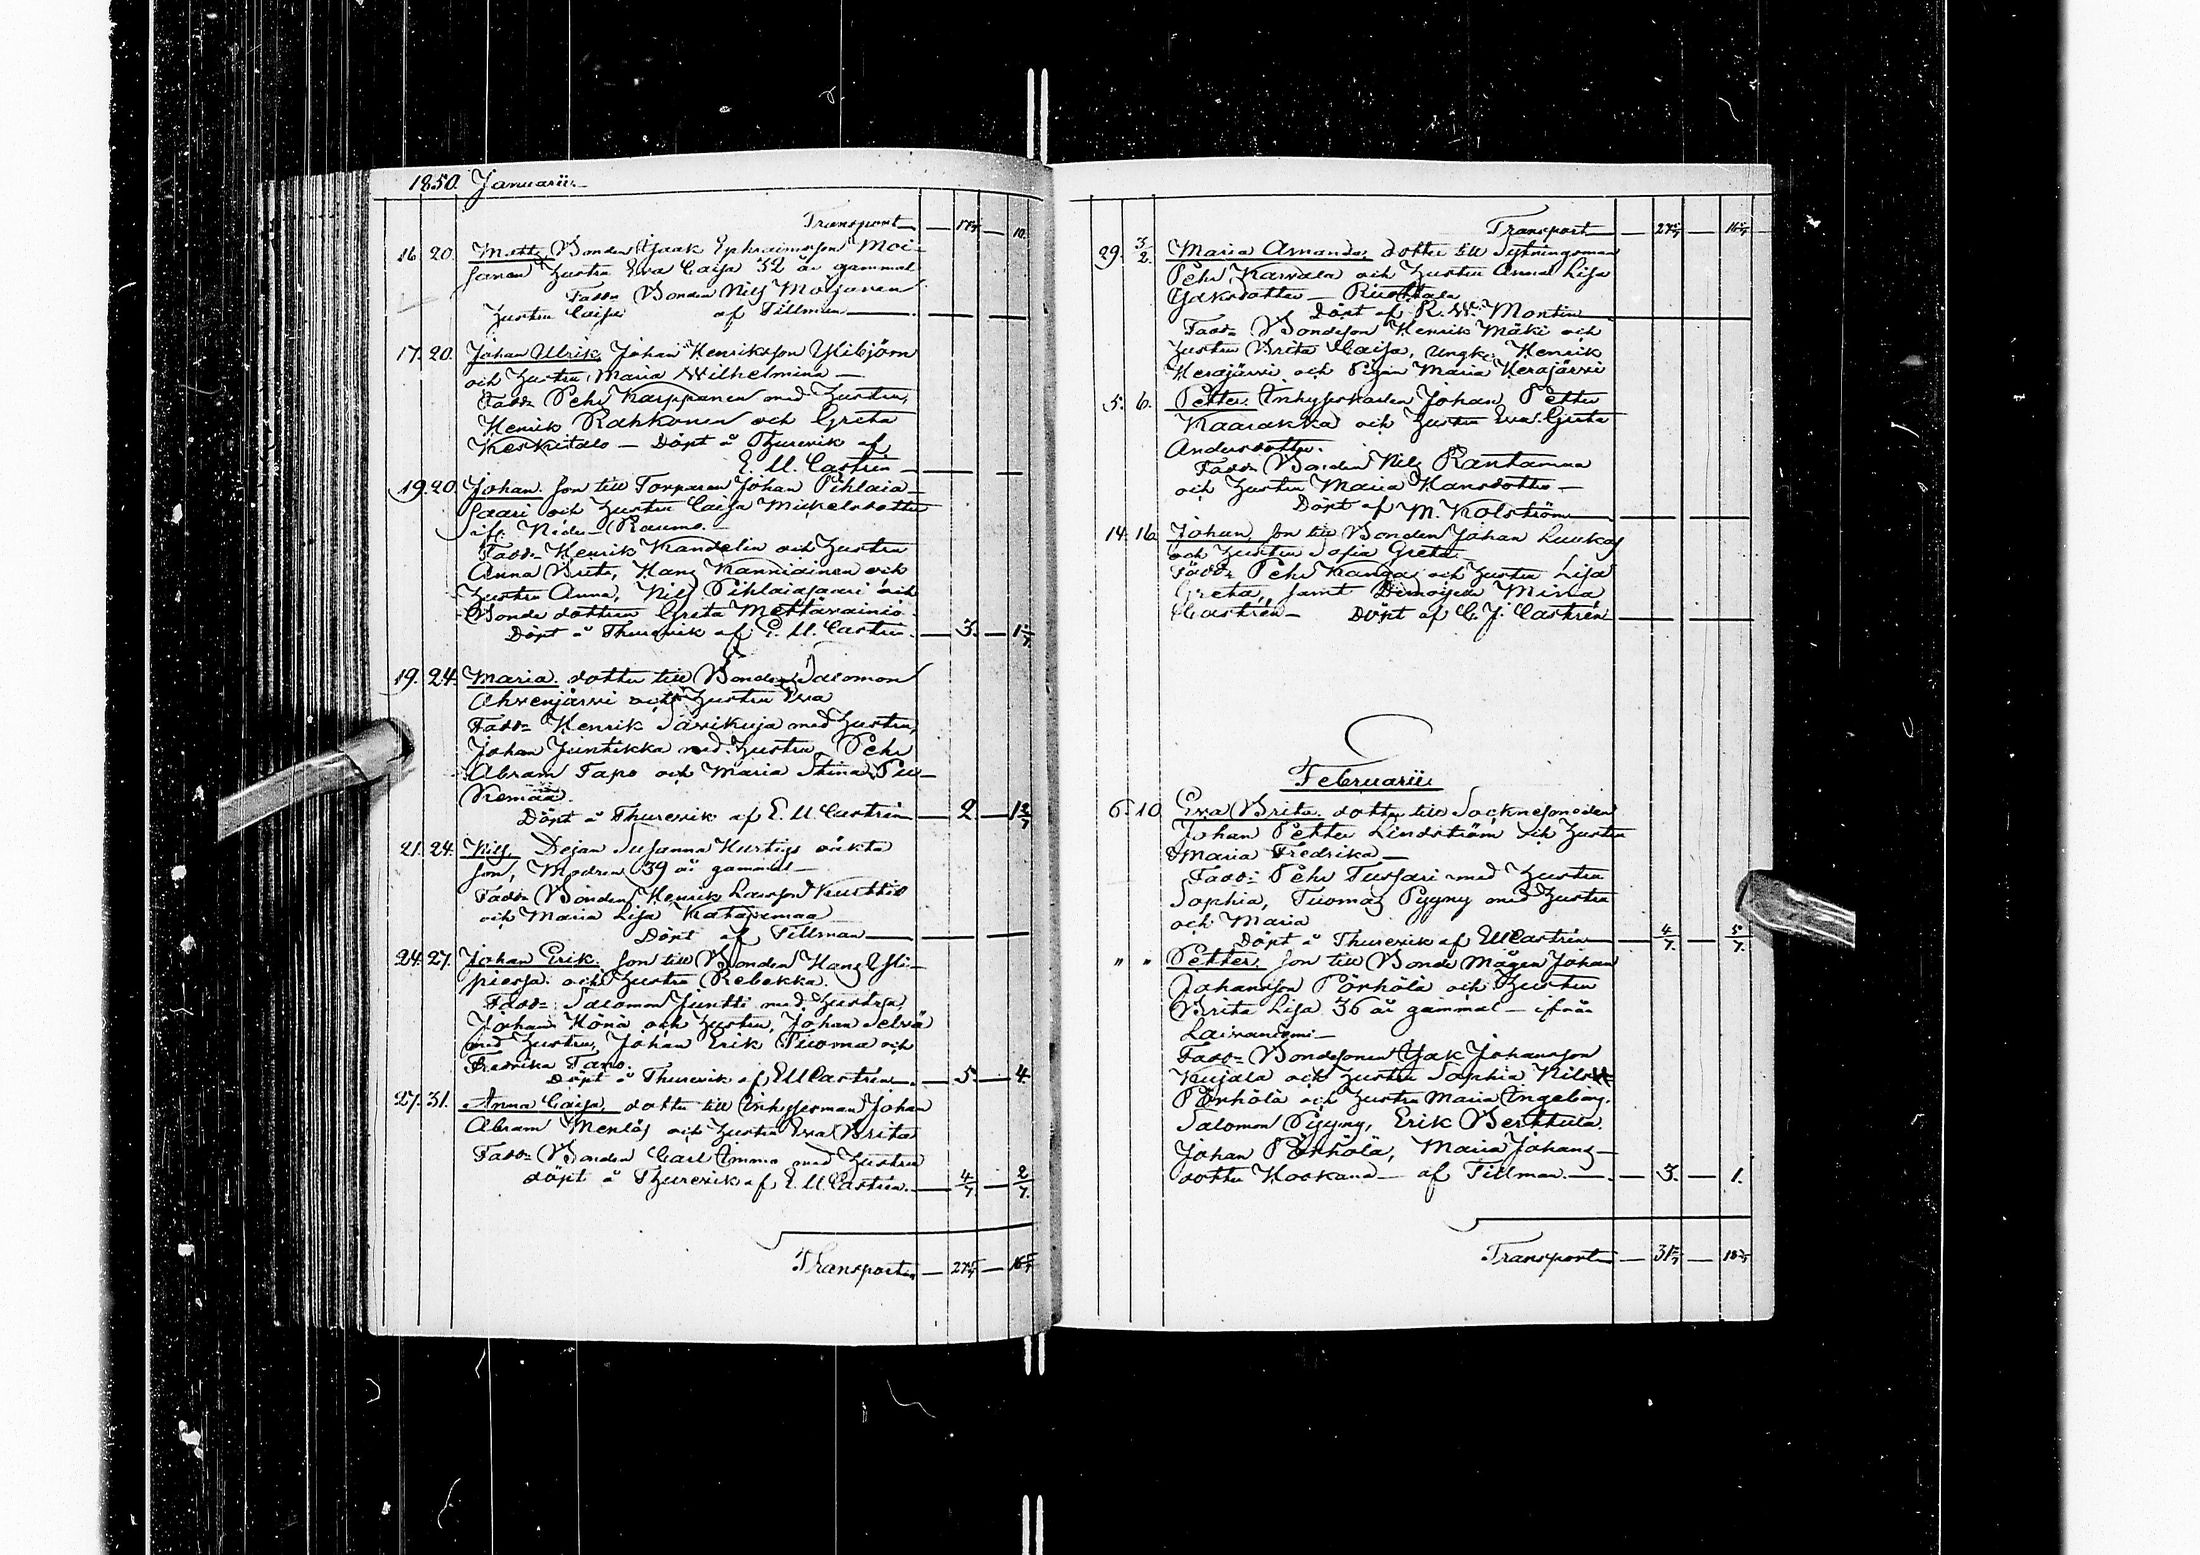 1850. Januarii
Transport
16. 20. Matts, Bonden Isaak Ephraimsson Moi-
sanen Hustru Eva Caisa 32 år gammal
Fadd: Bonden Nils Moisanen
Hustru Caisa af Tillman
17. 20. Johan Ulrik, Johan Henriksson Ylibjörn
och Hustru Maria Wilhelmina
Fadd: Pehr Karppanen med Hustru,
Henrik Rahkonen och Greta
Keskitalo — Döpt å Thurevik af
E. U. Castrén
19. 20. Johan, son till Torparen Johan Pihlaia-
saari och Hustru Caisa Mickelsdotter
ifr. Neder-Raumo.
Fadd: Henrik Kandelin och Hustru
Anna Brita, Hans Kanniainen och
Hustru Anna, Nils Pihlaiasaari och
Bonde dottren Greta Mettävainio
Döpt å Thurevik af E. U. Castrén. 3. 1
19. 24. Maria, dotter till Bonden Salomon
Ahvenjärvi och Hustru Eva
Fadd: Henrik Särikuja med Hustru,
Johan Juntikka med Hustru, Pehr
Abram Tapo och Maria Stina Pu-
kemaa.
Döpt å Thurevik af E. U. Castrén 2 1 2/7
21. 24. Nils, Dejan Susanna Hurtigs oäkta
son, Modren 39 år gammal
Fadd: Bonden Henrik Larsson Kurttio
och Maria Lisa Katajamaa
Döpt af Tillman
24. 27. Johan Erik, son till Bonden Hans Yli-
piessa och Hustru Rebekka.
Fadd: Salomon Juntti med Hustru,
Johan Könä och Hustru, Johan Selvä
med Hustru, Johan Erik Tuoma och
Fredrika Tapo.
Döpt å Thurevik af E U Castrén 5. 4.
27. 31. Anna Caisa, dotter till Inhysesman Johan
Abram Menlös och Hustru Eva Brita
Fadd: Bonden Carl Imma med Hustru
döpt å Thurevik af E. U. Castrén. 4/7 2/7
Transport
Transport
29. 3/2. Maria Amanda, dotter till Sytningsman
Pehr Karvala och Hustru Anna Lisa
Isaksdotter — Ruottala
Döpt af R. W. Montin
Fadd: Bondeson Henrik Mäki och
Hustru Brita Caisa, Ungk: Henrik
Herajärvi och Pigan Maria Herajärvi
5. 6. Petter, Inhyseskarlen Johan Petter
Kaarakka och Hustru Eva Greta
Andersdotter.
Fadd: Bonden Nils Rantamaa
och Hustru Maria Hansdotter
Döpt af M. Kolström
14. 16. Johan, son till Bonden Johan Luukas
och Hustru Sofia Greta
Fadd: Pehr Kangas och Hustru Lisa
Greta, samt Demoiselle Mina
Castrén — Döpt af C. J. Castrén
Februarii
6. 10. Eva Brita, dotter till Socknesmeden
Johan Petter Lindström och Hustru
Maria Fredrika
Fadd: Pehr Tussari med Hustru
Sophia, Tuomas Pyyny med Hustru
och Maria
Döpt å Thurevik af E U Castrén 4/7. 5/7.
" " Petter, son till Bonde Mågen Johan
Johansson Pörhölä och Hustru
Brita Lisa 36 år gammal — ifrån
Laivaniemi
Fadd: Bondesonen Isak Johansson
Kujala och Hustru Sophia Nils
Pörhölä och Hustru Maria Ingeborg.
Salomon Pyyny, Erik Berttula.
Johan Pörhölä, Maria Johans-
dotter Hookana — af Tillman. 3. 1.
Transport